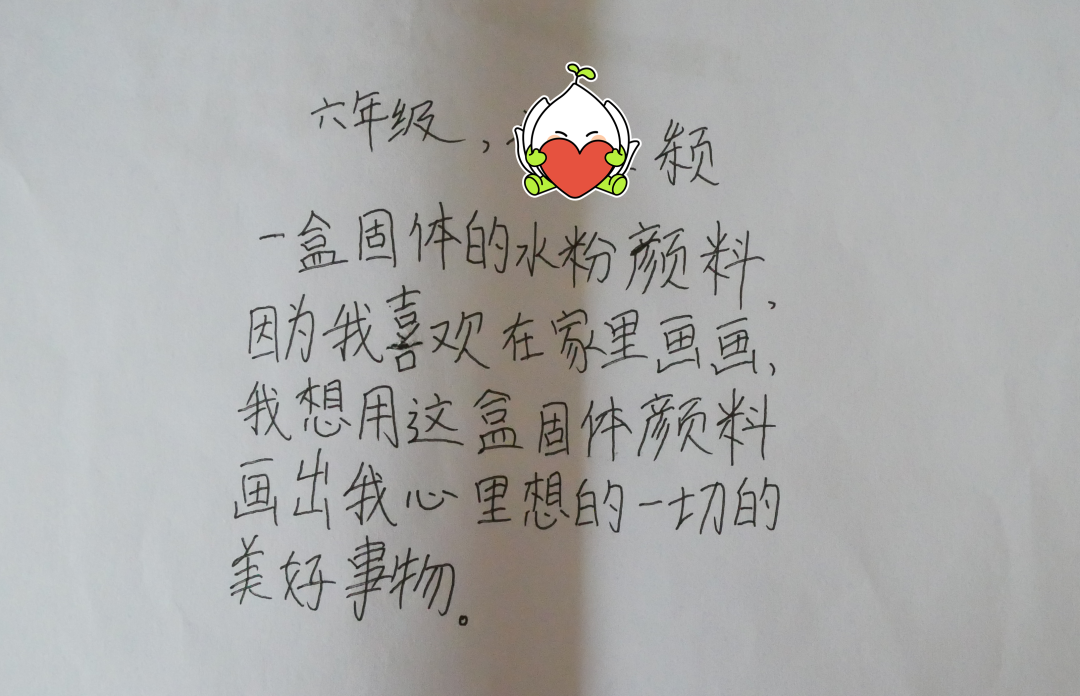 六年级，颖
一盒固体的水粉颜料，
因为我喜欢在家里画画，
我想用这盒固体颜料
画出我心里想的一切的
美好事物。